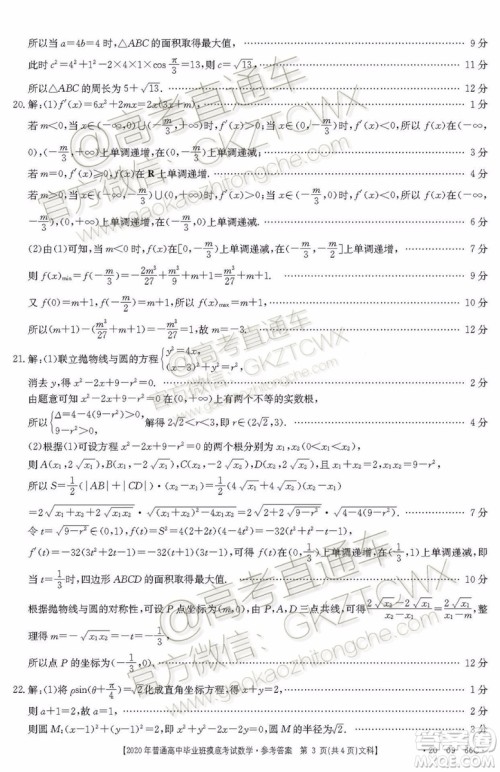 所以当 a=4b=4 时,△ABC 的面积取得最大值, 9 分
此时 c²=4²+1²-2×4×1×cos π/3=13,则 c=√13. 11 分
所以△ABC 的周长为 5+√13. 12 分
20. 解:(1)f′(x)=6x²+2mx=2x(3x+m), 1 分
若 m<0,当 x∈(-∞,0)∪(-m/3,+∞)时,f′(x)>0;当 x∈(0,-m/3)时,f′(x)<0.所以 f(x)在(-∞,
0),(-m/3,+∞)上单调递增,在(0,-m/3)上单调递减. 3 分
若 m=0,f′(x)≥0,f(x)在 R 上单调递增. 4 分
若 m>0,当 x∈(-∞,-m/3)∪(0,+∞)时,f′(x)>0;当 x∈(-m/3,0)时,f′(x)<0.所以 f(x)在(-∞,
-m/3),(0,+∞)上单调递增,在(-m/3,0)上单调递减. 6 分
(2)由(1)可知,当 m<0 时,f(x)在[0,-m/3]上单调递减,在(-m/3,-m/2]上单调递增. 7 分
则 f(x)min=f(-m/3)=-2m³/27+m³/9+m+1=m³/27+m+1. 9 分
又 f(0)=m+1,f(-m/2)=m+1,所以 f(x)max=m+1. 10 分
所以(m+1)-(m³/27+m+1)=-m³/27=1,故 m=-3. 12 分
21. 解:(1)联立抛物线与圆的方程{y²=4x, (x-3)²+y²=r²,
消去 y,得 x²-2x+9-r²=0. 2 分
由题意可知 x²-2x+9-r²=0 在(0,+∞)上有两个不等的实数根.
所以{Δ=4-4(9-r²)>0, 9-r²>0, 解得 2√2<r<3,即 r∈(2√2,3). 4 分
(2)根据(1)可设方程 x²-2x+9-r²=0 的两个根分别为 x₁,x₂(0<x₁<x₂),
则 A(x₁,2√x₁),B(x₁,-2√x₁),C(x₂,-2√x₂),D(x₂,2√x₂),且 x₁+x₂=2,x₁x₂=9-r²,
所以 S=1/2(|AB|+|CD|)·(x₂-x₁)=1/2(4√x₁+4√x₂)·(x₂-x₁)
=2√(x₁+x₂+2√x₁x₂)·√((x₁+x₂)²-4x₁x₂)=2√(2+2√(9-r²))·√(4-4(9-r²)). 7 分
f′(t)=-32(3t²+2t-1)=-32(t+1)(3t-1),可得 f(t)在(0,1/3)上单调递增,在(1/3,1)上单调递减,即
当 t=1/3 时,四边形 ABCD 的面积取得最大值. 10 分
根据抛物线与圆的对称性,可设 P 点坐标为(m,0),由 P,A,D 三点共线,可得(2√x₂-2√x₁)/(x₂-x₁)=2√x₁/(x₁-m),整
理得 m=-√x₁x₂=-t=-1/3.
所以点 P 的坐标为(-1/3,0). 12 分
22. 解:(1)将 ρsin(θ+π/4)=√2化成直角坐标方程,得 x+y=2, 1 分
则 a+1=2,故 a=1. 2 分
【2020 年普通高中毕业班摸底考试数学·参考答案 第 3 页(共 4 页)文科】
高考直通车
官方微信:GKZTCWX
官方网站:gaokaozhitongche.com